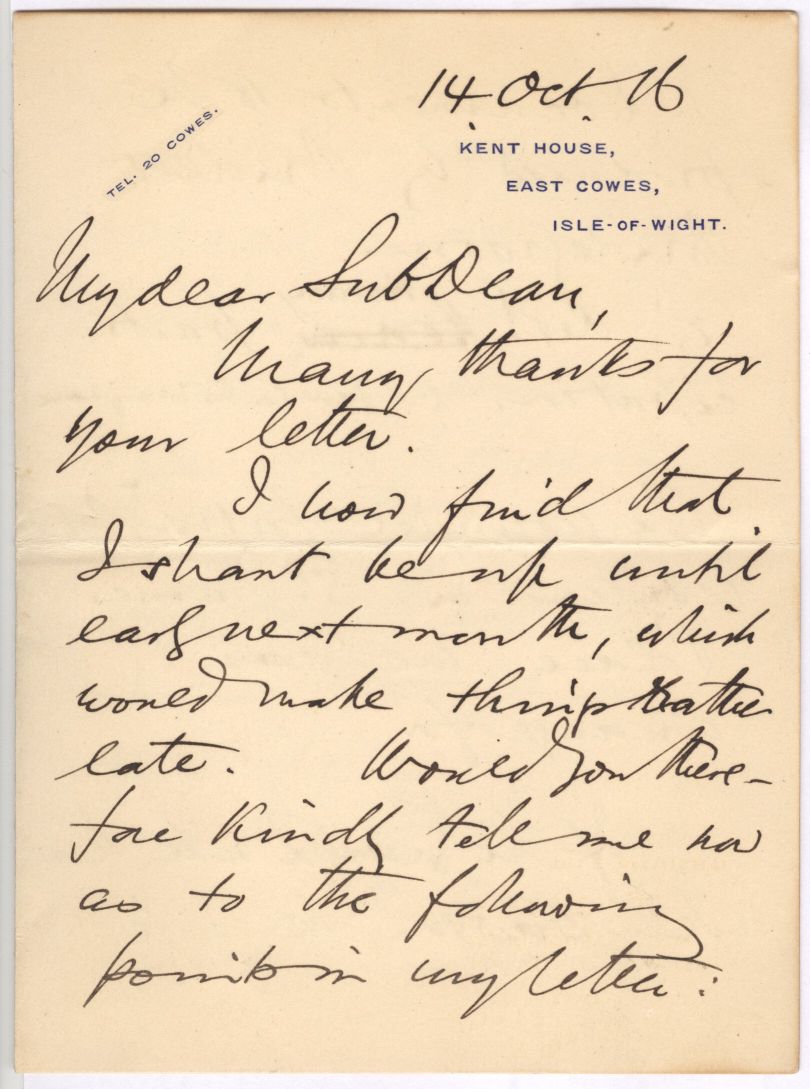 14 Oct 16
TEL. 20 COWES.
KENT HOUSE,
EAST COWES,
ISLE-OF-WIGHT.
My dear SubDean,
Many thanks for
your letter.
I now find that
I shant be up until
early next month, which
would make things rather
late. Would you there-
fore kindly tell me now
as to the following
points in my letter: